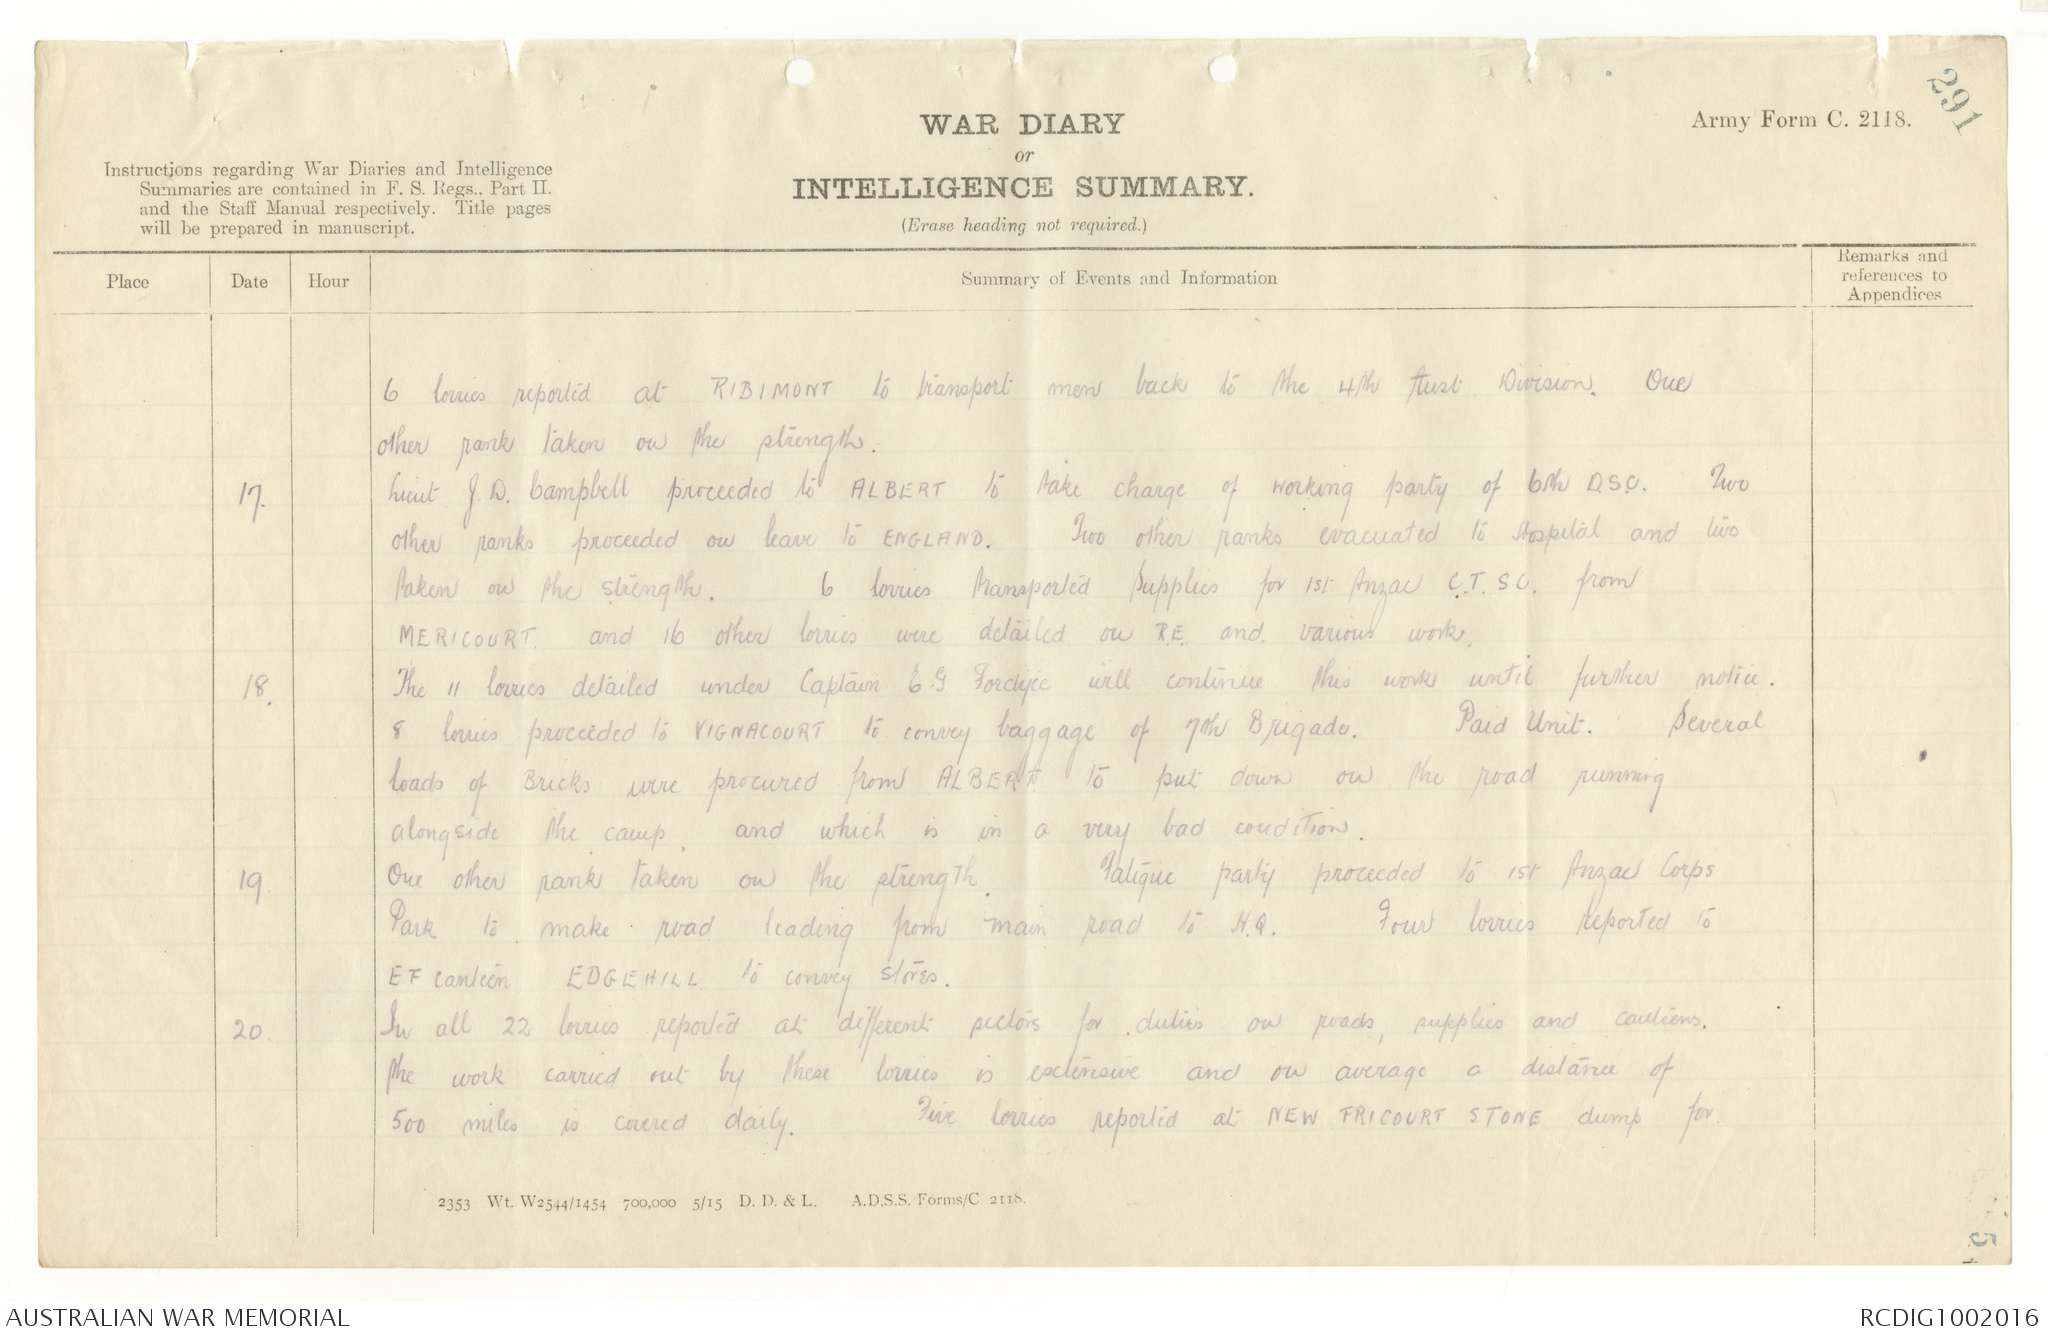 291
Army Form C. 2118.
WAR DIARY
or
INTELLIGENCE SUMMARY.
(Erase heading not required.)
Instructions regarding War Diaries and Intelligence
Summaries are contained in F. S. Regs., Part II.
and the Staff Manual respectively. Title pages
will be prepared in manuscript.
Place Date Hour Summary of Events and Information Remarks and references to Appendices
6 lorries reported at RIBIMONT to transport men back to the 4th Aust Division. One
other rank taken on the strength.
17. Lieut J. D. Campbell proceeded to ALBERT to take charge of working party of 6th D.S.C. Two
other ranks proceeded on leave to ENGLAND. Two other ranks evacuated to Hospital and two
taken on the strength. 6 lorries transported supplies for 1st Anzac C.T.S.C. from
MERICOURT and 16 other lorries were detailed on R.E. and various work.
18. The 11 lorries detailed under Captain E G Fordyce will continue this work until further notice.
8 lorries proceeded to VIGNACOURT to convey baggage of 7th Brigade. Paid Unit. Several
loads of Bricks were procured from ALBERT to put down on the road running
alongside the camp, and which is in a very bad condition.
19 One other rank taken on the strength. Fatigue party proceeded to 1st Anzac Corps
Park to make road leading from main road to H.Q. Four lorries reported to
EF canteen EDGEHILL to convey stores.
20. In all 22 lorries reported at different sectors for duties on roads, supplies and canteens.
The work carried out by these lorries is extensive and on average a distance of
500 miles is covered daily. Five lorries reported at NEW FRICOURT STONE dump for
2353 Wt. W2544/1454 700,000 5/15 D. D. & L. A.D.S.S. Forms/C 2118.
AUSTRALIAN WAR MEMORIAL
RCDIG1002016